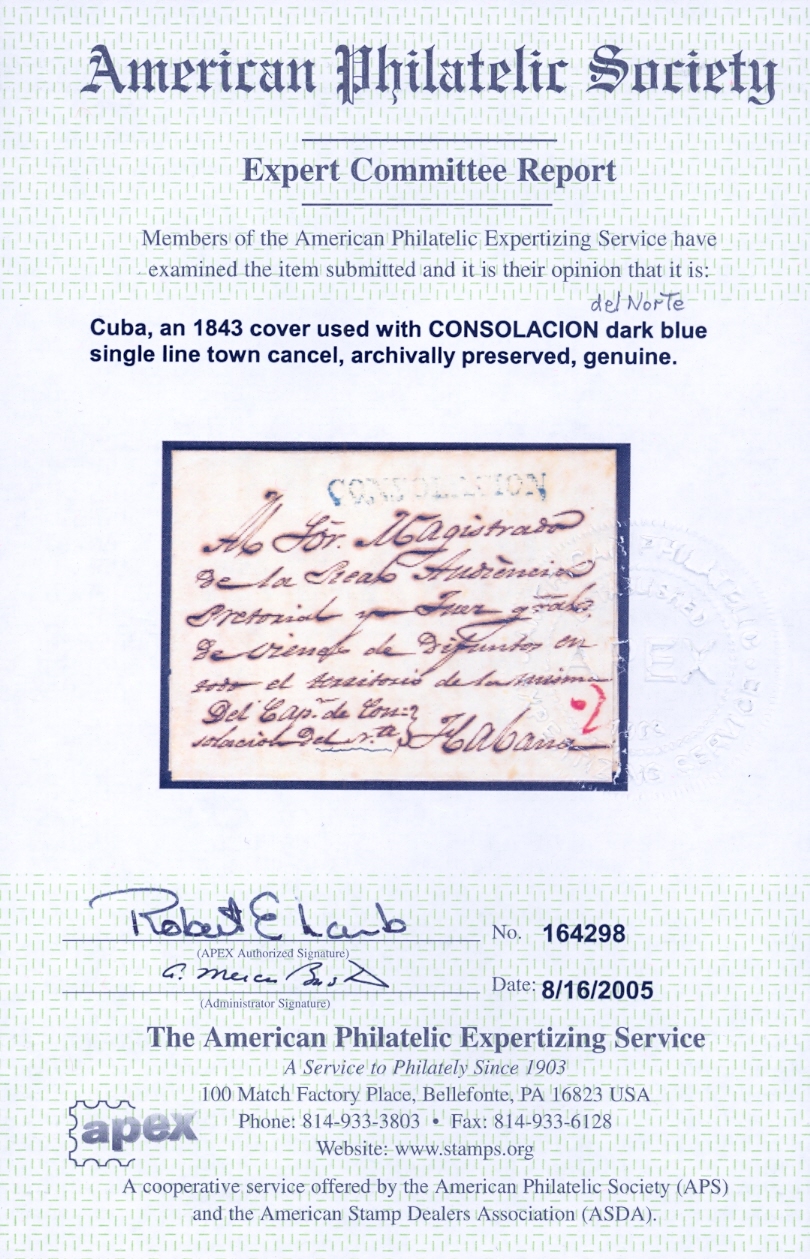 American Philatelic Society
Expert Committee Report
Members of the American Philatelic Expertizing Service have
examined the item submitted and it is their opinion that it is:
del Norte
Cuba, an 1843 cover used with CONSOLACION dark blue
single line town cancel, archivally preserved, genuine.
CONSOLACION
Al Sõr. Magistrado
de la Real Audiencia
Pretorial y Juez gral.
de vienes de Difuntos en
todo el territorio de la misma
Del Cap.n de Con=
solacion del N.te
Habana
2
Robert E Lamb
No. 164298
(APEX Authorized Signature)
Date: 8/16/2005
(Administrator Signature)
The American Philatelic Expertizing Service
A Service to Philately Since 1903
100 Match Factory Place, Bellefonte, PA 16823 USA
apex
Phone: 814-933-3803 • Fax: 814-933-6128
Website: www.stamps.org
A cooperative service offered by the American Philatelic Society (APS)
and the American Stamp Dealers Association (ASDA).